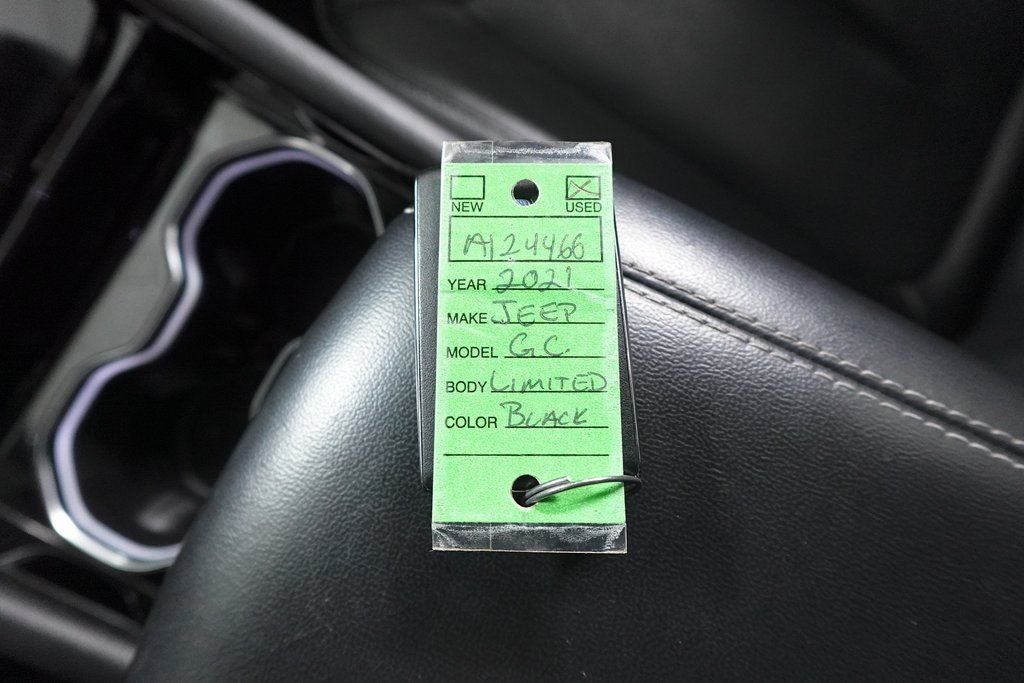 NEW USED
A124466
YEAR 2021
MAKE JEEP
MODEL G.C.
BODY LIMITED
COLOR BLACK